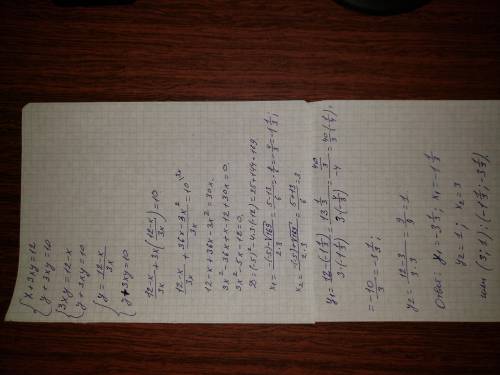 { x + 3xy = 12
{ y + 3xy = 10
{ 3xy = 12 - x
{ y + 3xy = 10
{ y = (12-x)/3x
{ y + 3xy = 10
(12-x)/3x + 3x((12-x)/3x) = 10
(12-x)/3x + (36x - 3x²)/3x = 10
12 - x + 36x - 3x² = 30x.
3x² - 36x + x - 12 + 30x = 0.
3x² - 5x - 12 = 0.
D = (-5)² - 4·3·(-12) = 25 + 144 = 169
x₁ = (-(-5) - √169)/(2·3) = (5-13)/6 = -8/6 = -4/3 = -1 1/3;
x₂ = (-(-5) + √169)/(2·3) = (5+13)/6 = 3.
y₁ = (12 - (-1 1/3))/(3·(-1 1/3)) = (13 1/3)/(3·(-4/3)) = (40/3)/(-4) = 40/3·(-1/4) =
= -10/3 = -3 1/3;
y₂ = (12-3)/(3·3) = 9/9 = 1.
Ответ: y₁ = -3 1/3, x₁ = -1 1/3
y₂ = 1; x₂ = 3
или (3; 1); (-1 1/3; -3 1/3)